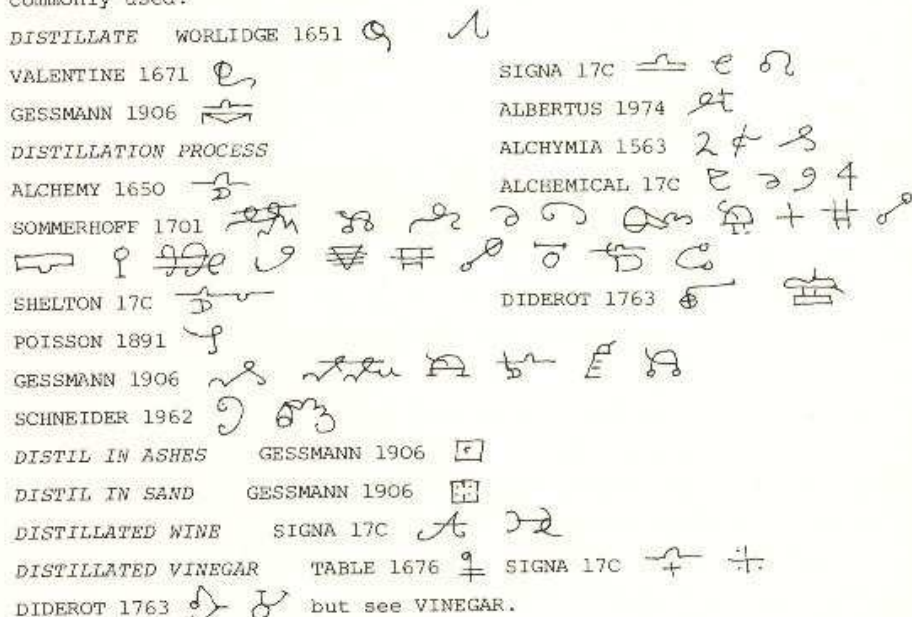 commonly used.
DISTILLATE WORLIDGE 1651
VALENTINE 1671 SIGNA 17C
GESSMANN 1906 ALBERTUS 1974
DISTILLATION PROCESS ALCHYMIA 1563
ALCHEMY 1650 ALCHEMICAL 17C
SOMMERHOFF 1701
SHELTON 17C DIDEROT 1763
POISSON 1891
GESSMANN 1906
SCHNEIDER 1962
DISTIL IN ASHES GESSMANN 1906
DISTIL IN SAND GESSMANN 1906
DISTILLATED WINE SIGNA 17C
DISTILLATED VINEGAR TABLE 1676 SIGNA 17C
DIDEROT 1763 but see VINEGAR.